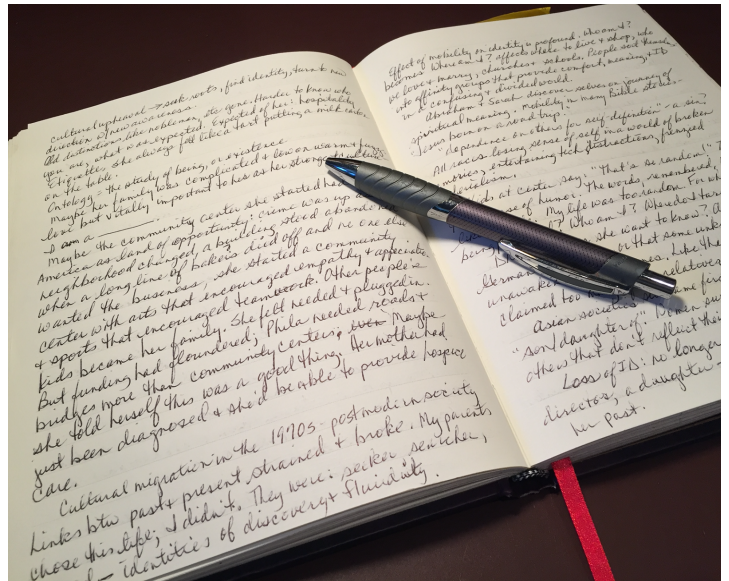 cultural upheaval → seek roots, find identity, turn to new
direction & new awareness.
Old distinctions, like nobleman, etc gone. Harder to know who
you are, what is an expected. Expected of her: hospitality.
Etiquette: she always felt like a tart putting a milk carton
on the table.
Ontology - the study of being, or existence.
Maybe her family was complicated & low on warm & fuzzy
love but vitally important to her as her strongest
I am a
Maybe the community center she started had
America as land of opportunity: crime was up a
neighborhood changed, a building stood abandoned
when a long line of bakers died off and no one else
wanted the business, she started a community
center with arts that encouraged empathy & appreciation
& sports that encouraged teamwork. Other people's
kids became her family. She felt needed & plugged in.
But funding had floundered; Phila needed roads &
bridges more than community centers. Maybe
she told herself this was a good thing. Her mother had
just been diagnosed & she'd be able to provide hospice
care.
Cultural migration in the 1970s - postmodern society
Links btw past & present strained & broke. My parents
chose this life; I didn't. They were: seeker, searcher,
identities of discovery & fluidity.
Effect of mobility on identity is profound. Who am I?
becomes Where am I? affects where to live & shop, who
we love & marry, churches & schools. People sort themselves
into affinity groups that provide comfort, meaning, & ID
in a confusing & divided world.
Abraham & Sarah discover selves on journey of
spiritual meaning. Mobility in many Bible stories -
Jesus born on a road trip.
"dependence on others for self definition" - a sin?
All races losing sense of self in a world of broken
memories, entertaining tech distractions, frenzied
materialism.
kids at center say: "That's so random!"
sense of humor? The words, remembered,
My life was too random. For wh
Who am I? Where do I turn
she want to know? A
or that some unk
German
unawake Like the
claimed too relatives
Asian societies some
"son/daughter of." Women su
others that don't reflect their
Loss of ID: no longer
director, a daughter
her past.